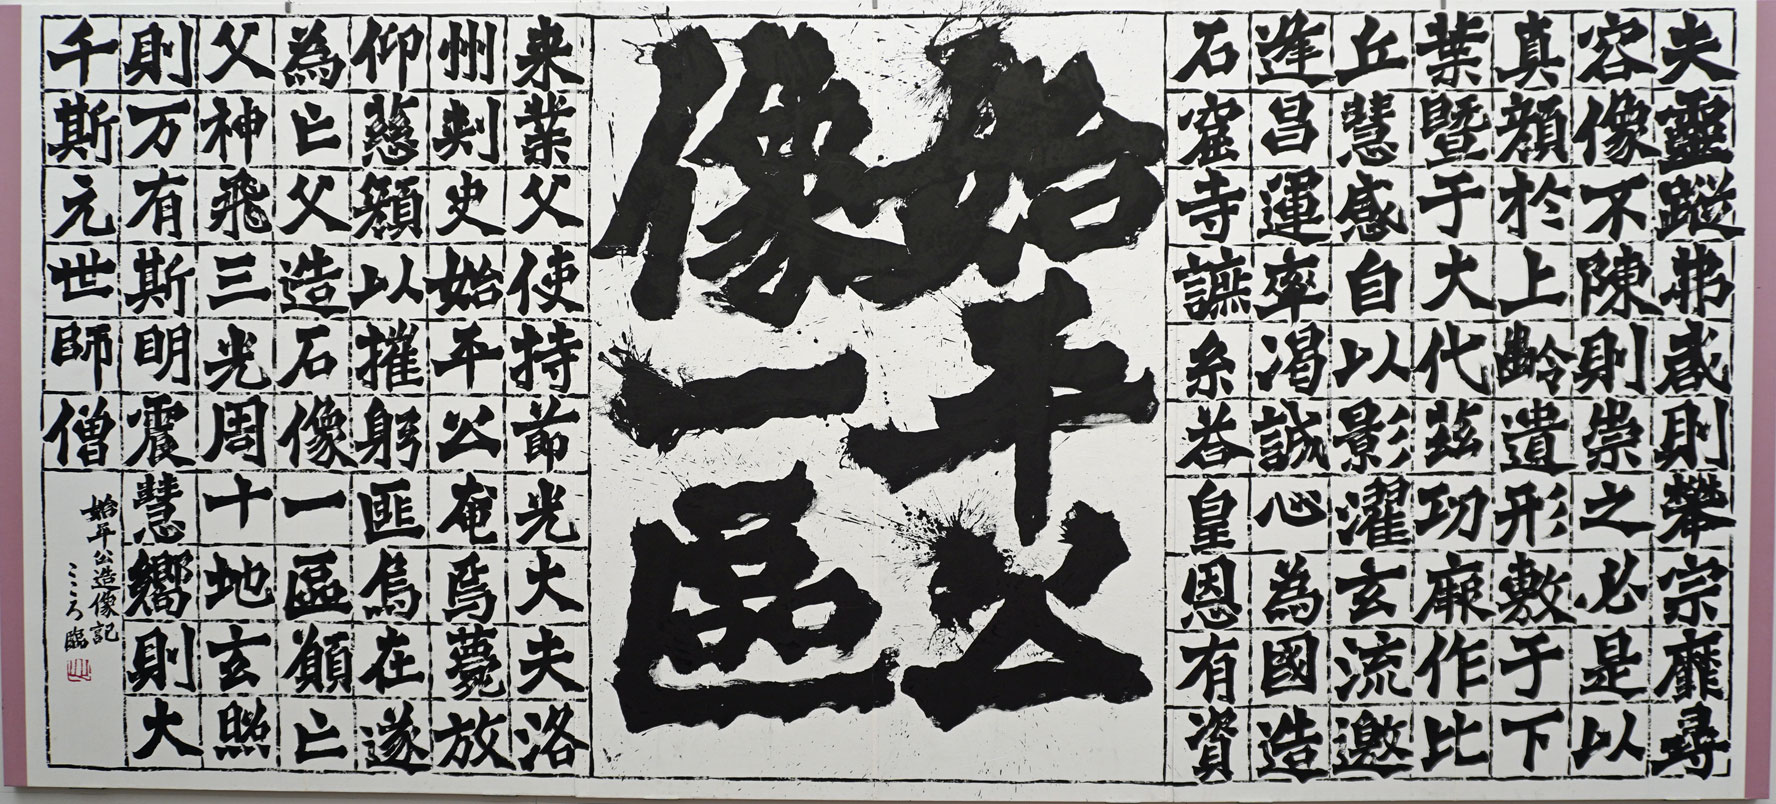 夫靈蹤弗啓則攀宗靡尋
容像不陳則崇之必是以
真顔於上齡遺形敷于下
葉暨于大代茲功厥作比
丘慧感自以影濯玄流邀
逢昌運率渇誠心為國造
石窟寺讌糸荅皇恩有資
始平公
像一區
来業父使持節光大夫洛
州刾史始平公奄焉薨放
仰慈顔以摧躬匪烏在遂
為亡父造石像一區願亡
父神飛三光周十地玄照
則万有斯明震慧嚮則大
千斯元世師僧
始平公造像記
こころ臨